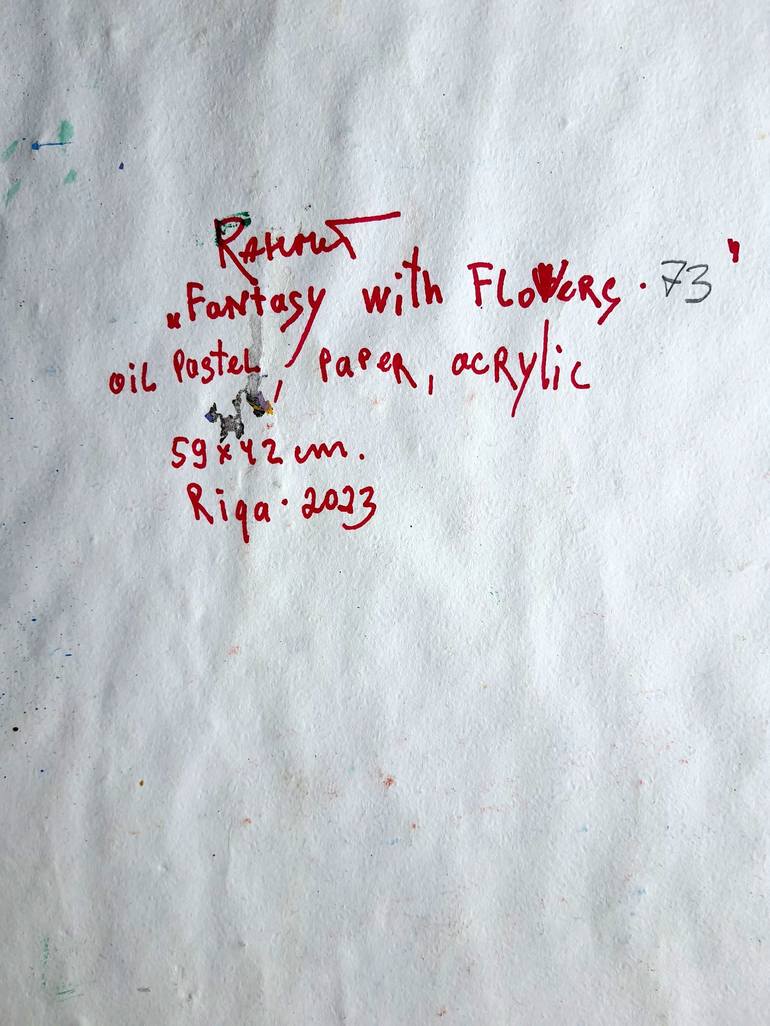 „Fantasy with Flowers · 73"
oil pastel, paper, acrylic
59 x 42 cm.
Riga · 2023